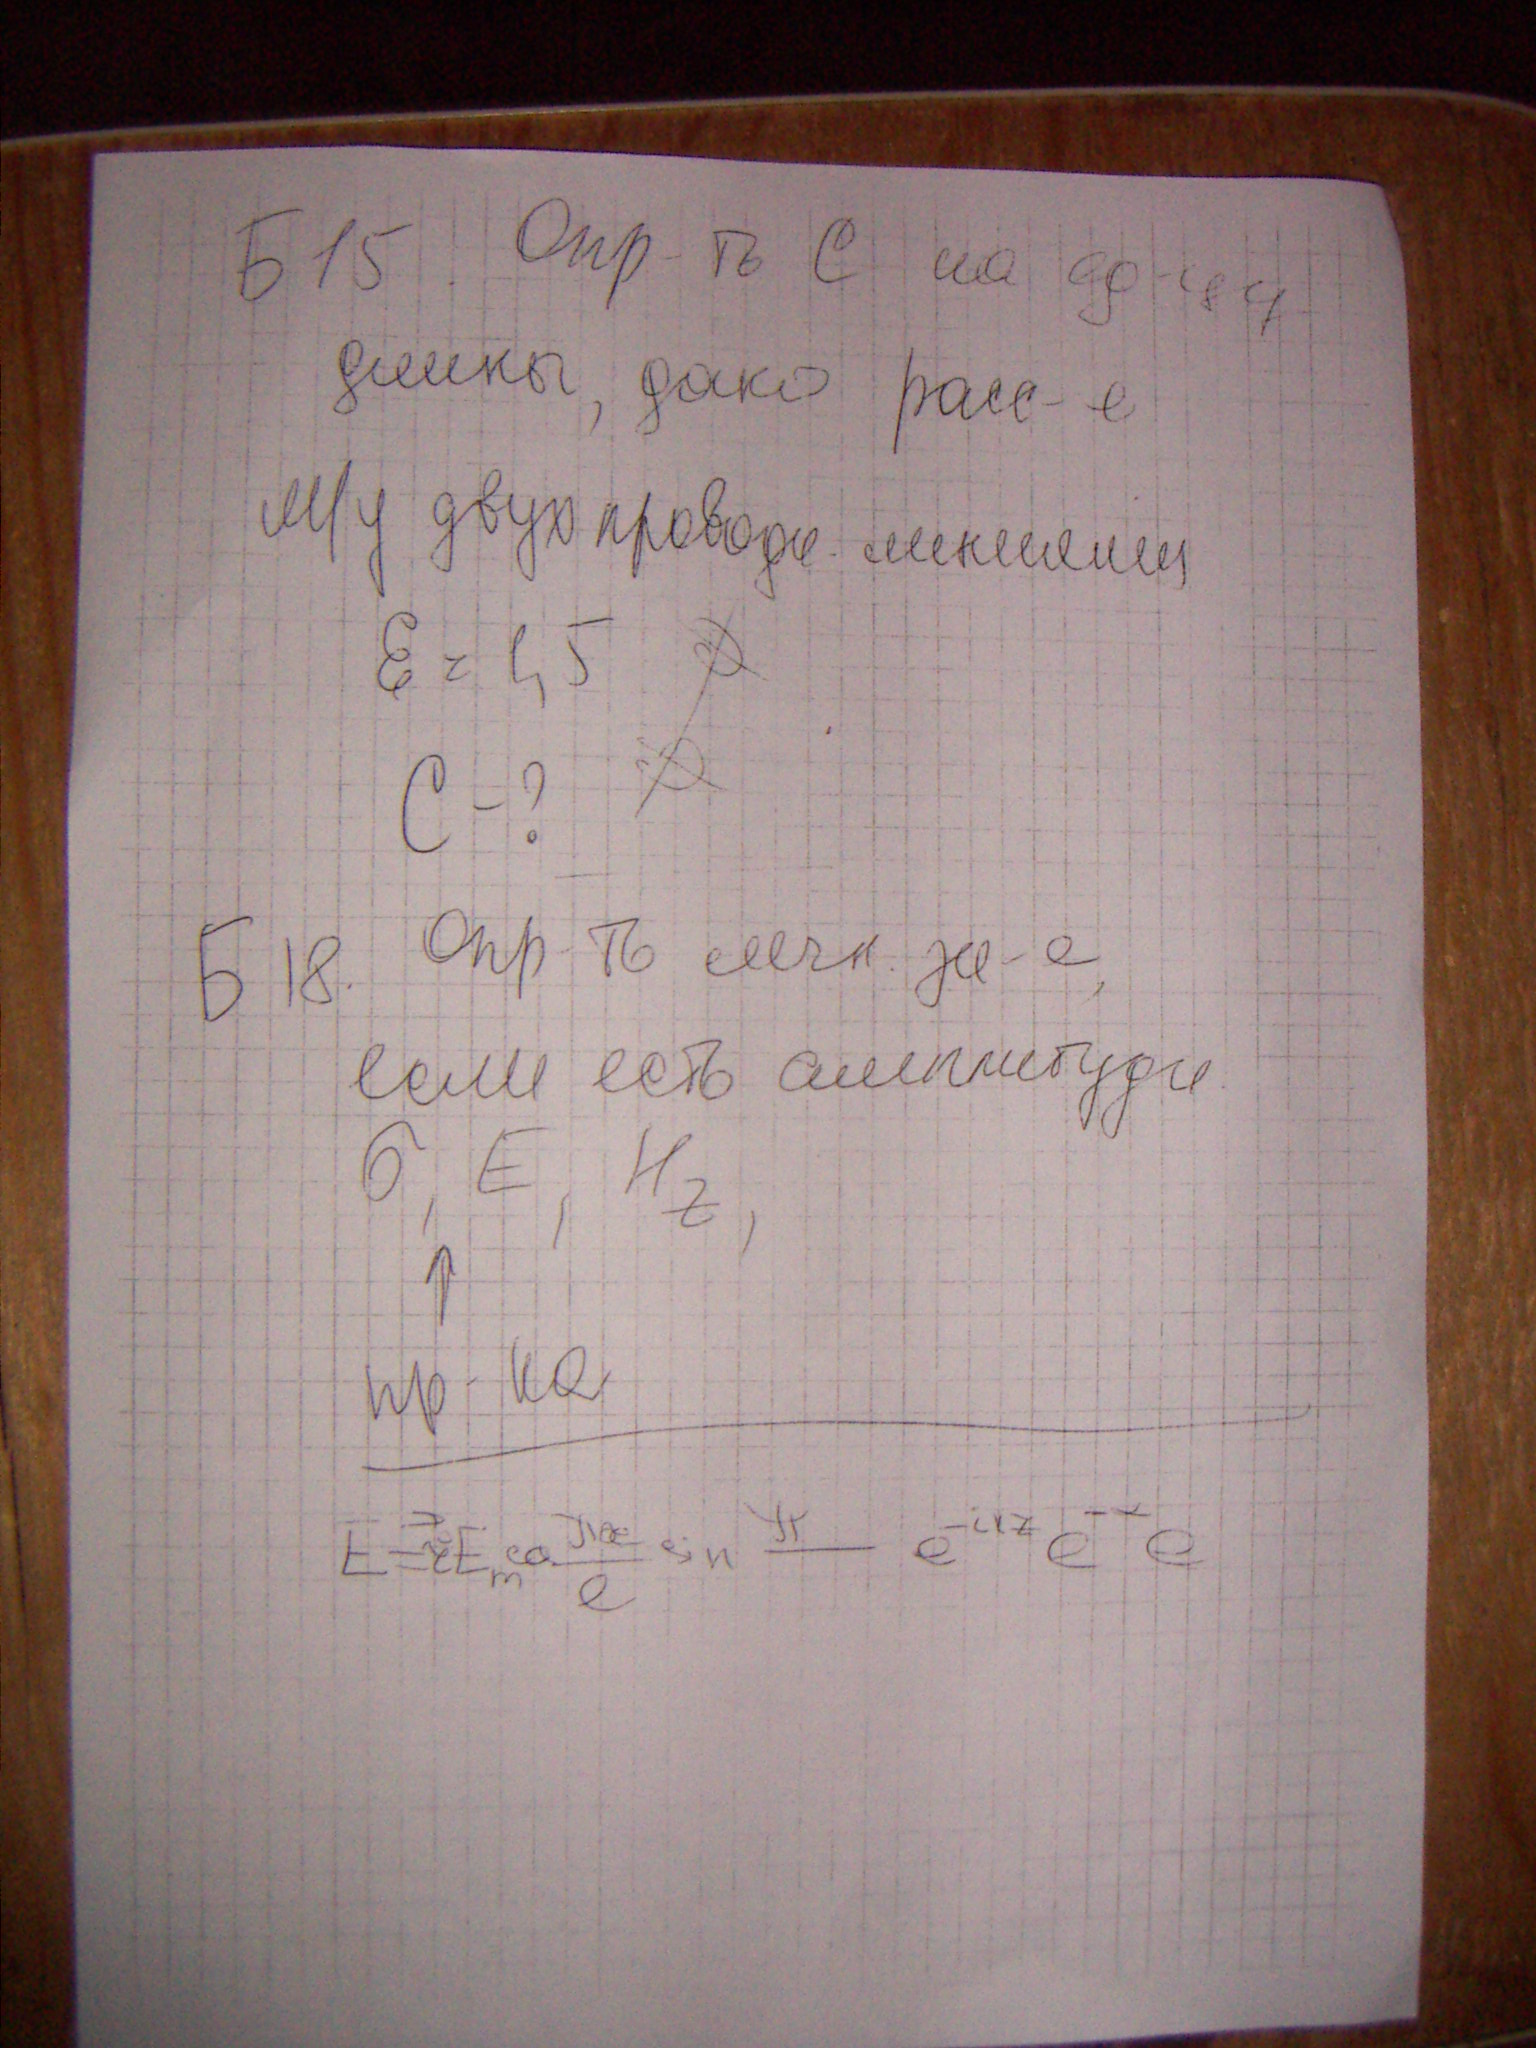 Б 15. Опр-ть С на ед-цу
длины, дано расс-е
м/у двухпроводн. линиями
ε = 1,5
С - ?
Б 18. Опр-ть мгн. зн-е,
если есть амплитуды
σ, E, Hz,
пр-ка
E = Em cos πx/e sin π e^-iκz e e